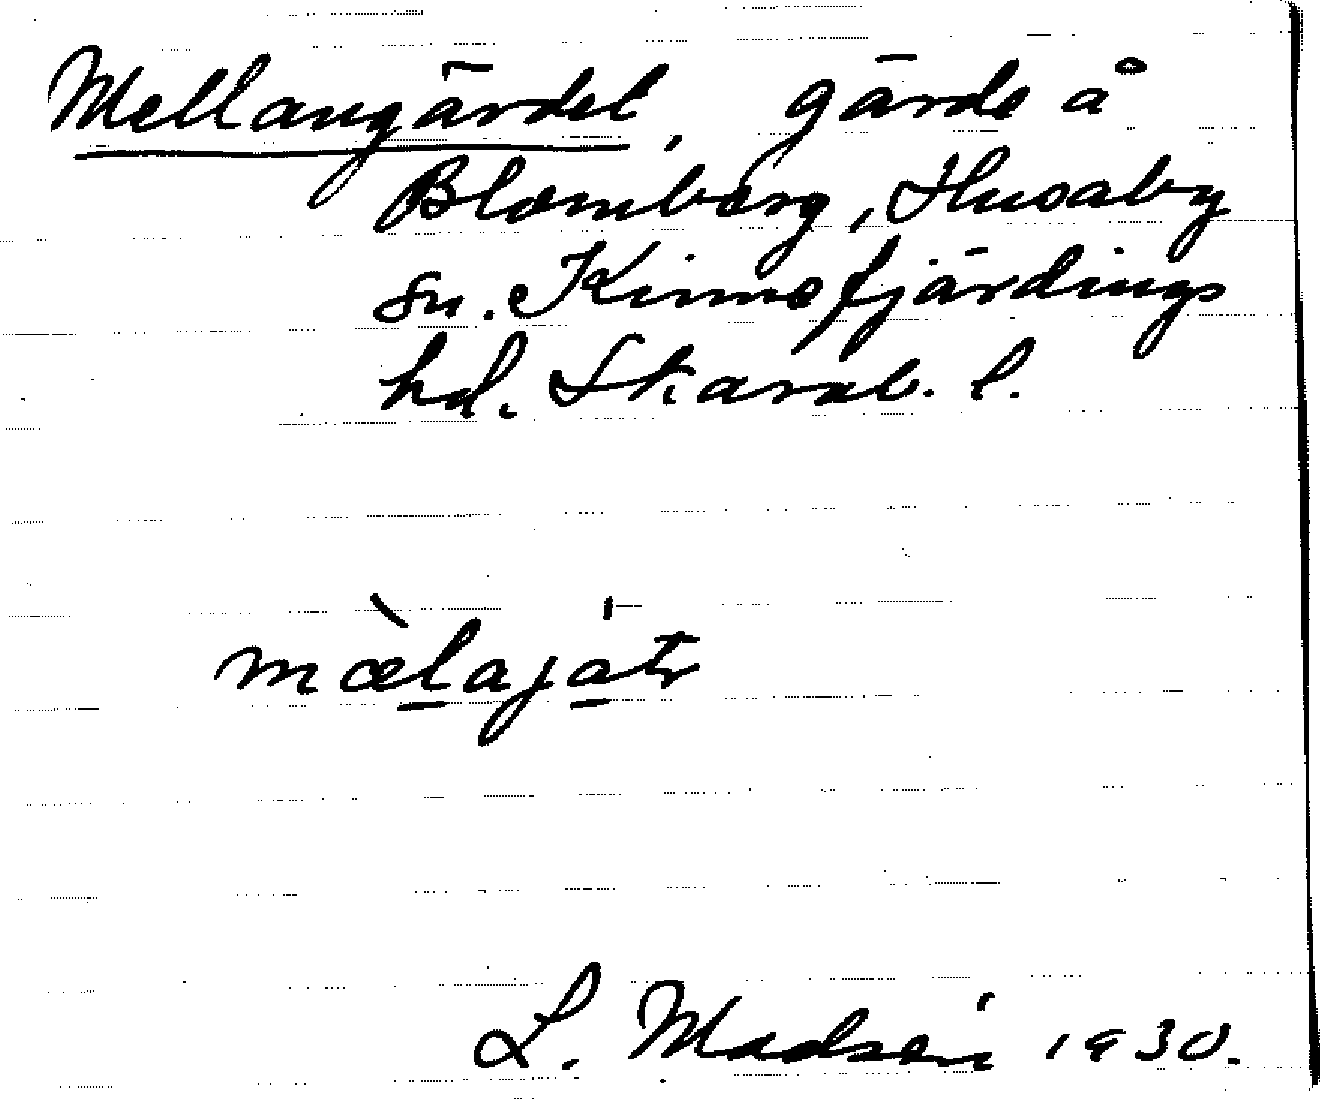 Mellangärdet, gärde å
Blomberg, Husaby
sn. Kinnefjärdings
hd. Skarab. l.
mæ̀laját
L. Madsén 1930.